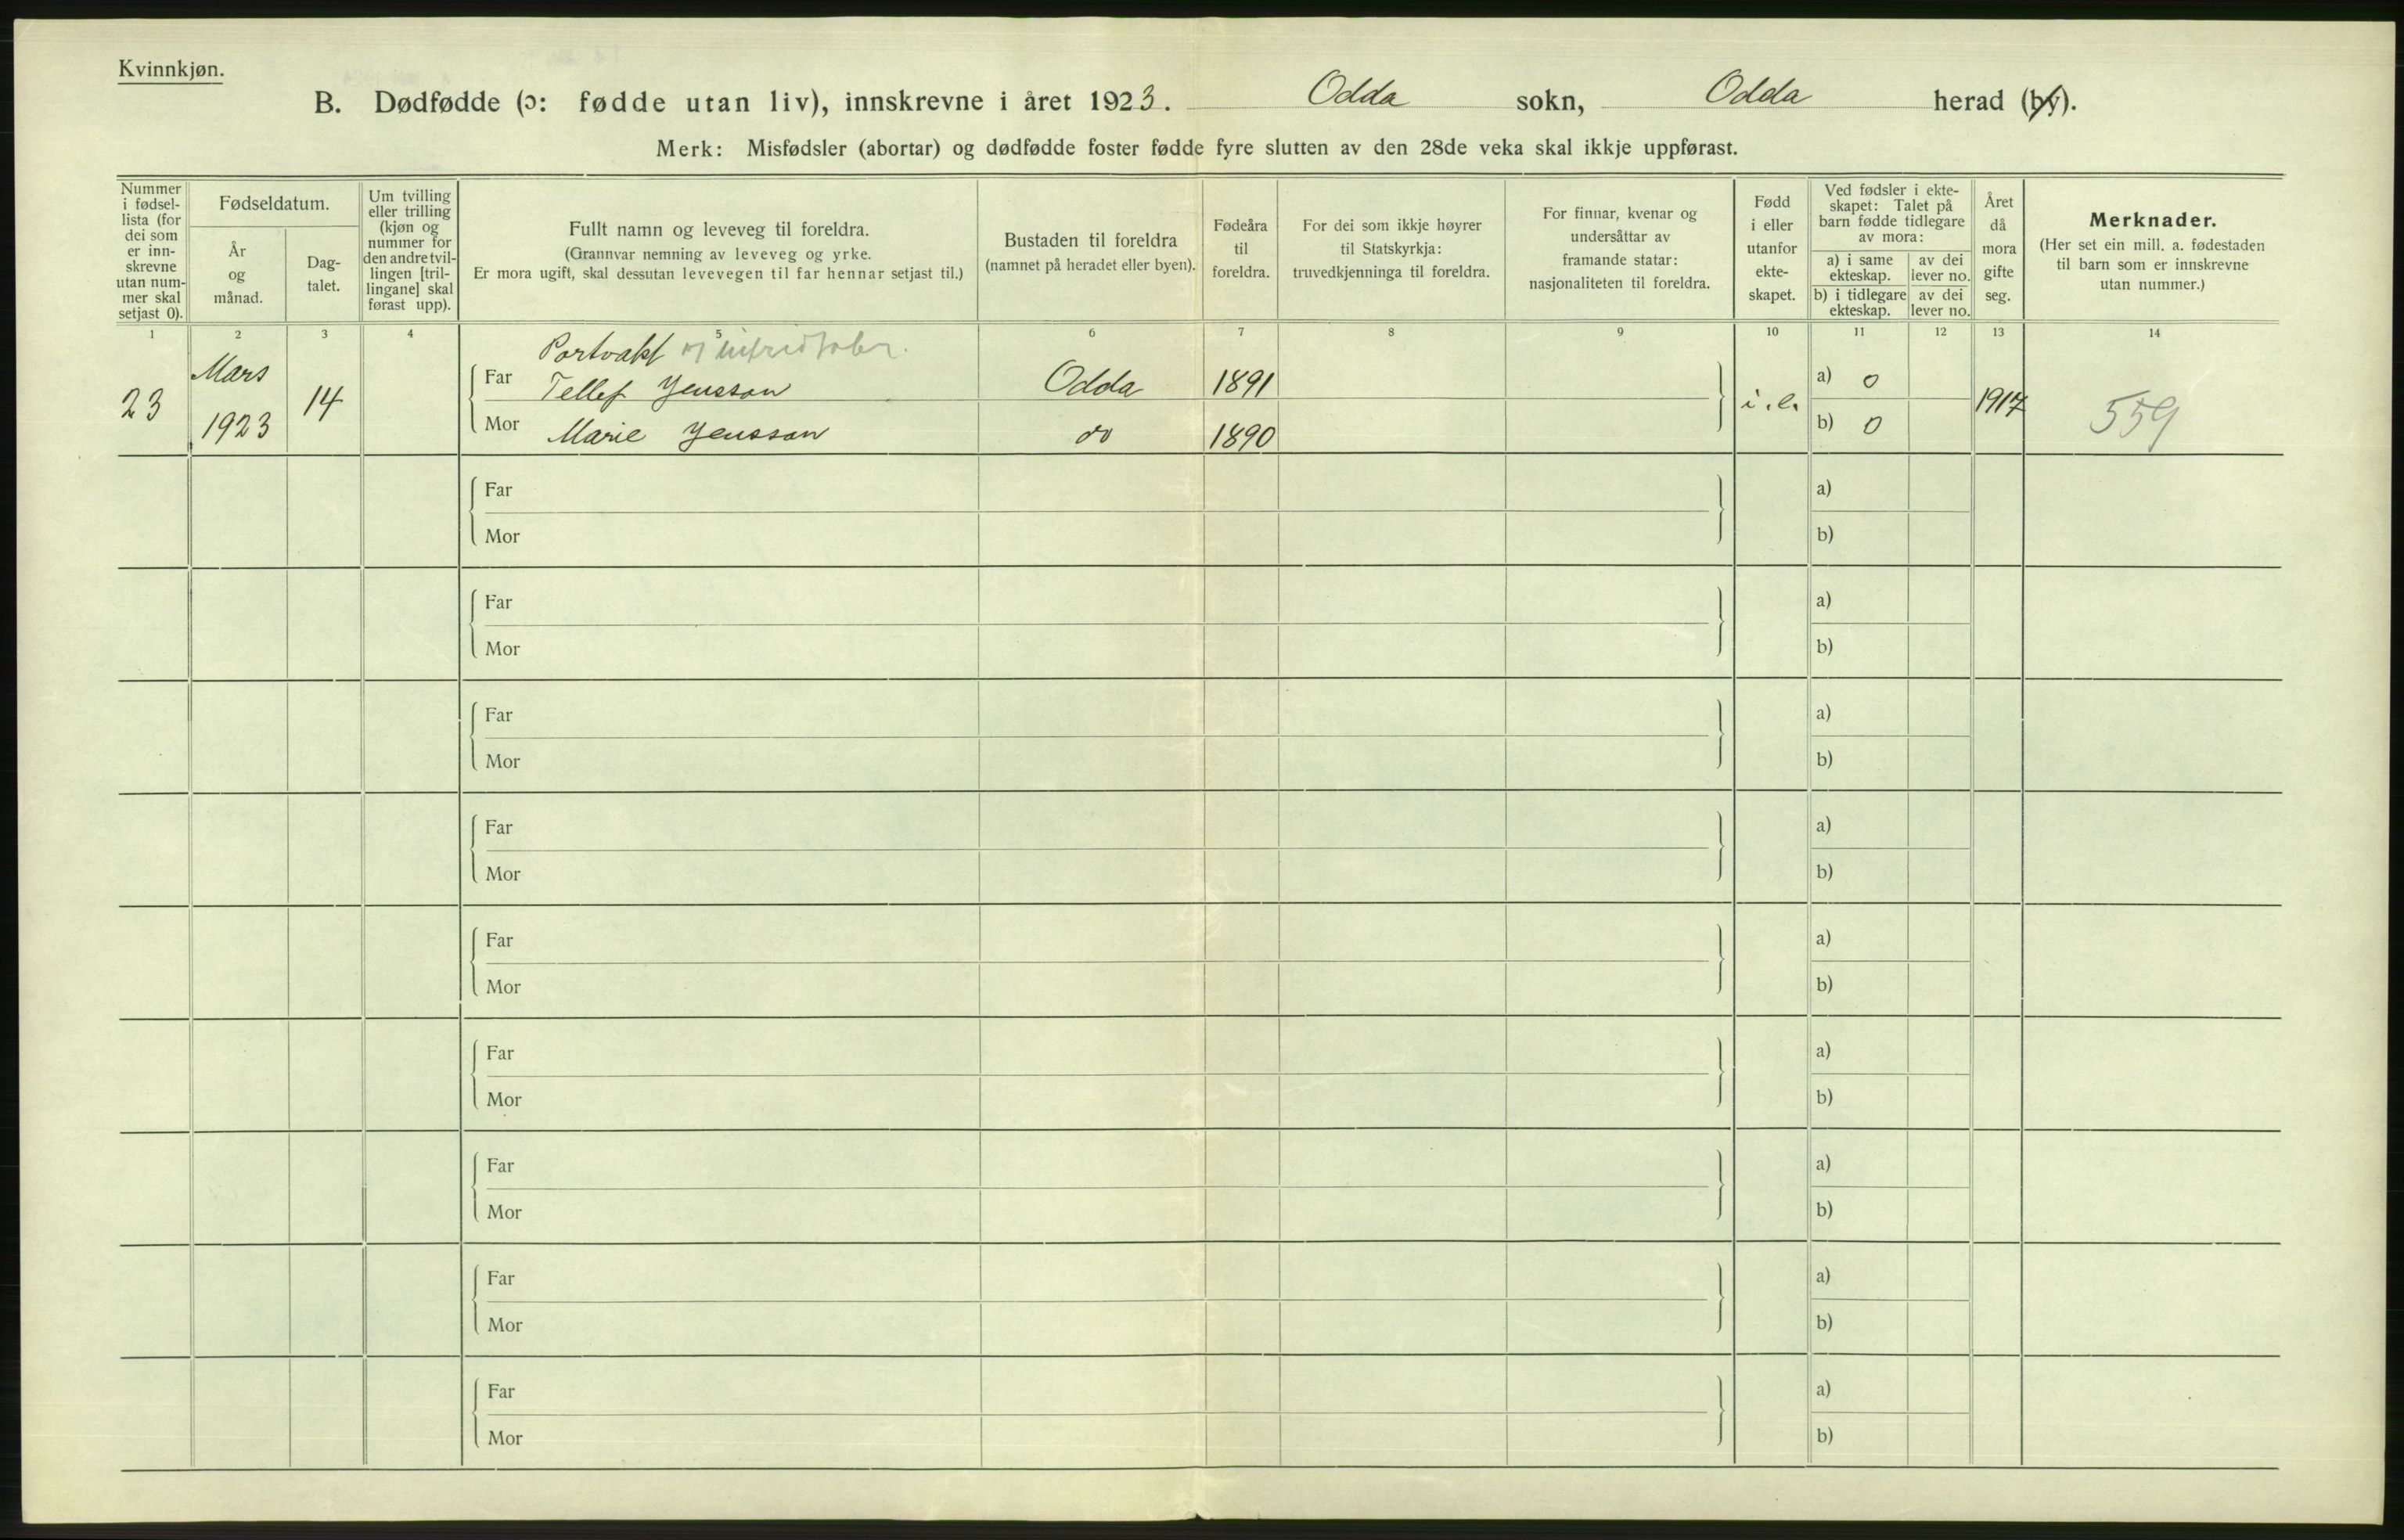 Kvinnkjøn.
B. Dødfødde (ɔ: fødde utan liv), innskrevne i året 1923. Odda sokn, Odda herad (by).
Merk: Misfødsler (abortar) og dødfødde foster fødde fyre slutten av den 28de veka skal ikkje uppførast.
Nummer i fødsel-lista (for dei som er inn-skrevne utan num-mer skal setjast 0).
Fødseldatum.
År og månad.
Dag-talet.
Um tvilling eller trilling (kjøn og nummer for den andre tvil-lingen [tril-lingane] skal førast upp).
Fullt namn og leveveg til foreldra.
(Grannvar nemning av leveveg og yrke.
Er mora ugift, skal dessutan levevegen til far hennar setjast til.)
Bustaden til foreldra
(namnet på heradet eller byen).
Fødeåra til foreldra.
For dei som ikkje høyrer til Statskyrkja: truvedkjenninga til foreldra.
For finnar, kvenar og undersåttar av framande statar: nasjonaliteten til foreldra.
Fødd i eller utanfor ekte-skapet.
Ved fødsler i ekte-skapet: Talet på barn fødde tidlegare av mora:
a) i same ekteskap.
av dei lever no.
b) i tidlegare ekteskap.
av dei lever no.
Året då mora gifte seg.
Merknader.
(Her set ein mill. a. fødestaden til barn som er innskrevne utan nummer.)
1 2 3 4 5 6 7 8 9 10 11 12 13 14
Portvakt
23 Mars 1923 14
Far Tellef Jensson Odda 1891 i. e. a) 0 1917 559
Mor Marie Jensson do 1890 b) 0
Far a)
Mor b)
Far a)
Mor b)
Far a)
Mor b)
Far a)
Mor b)
Far a)
Mor b)
Far a)
Mor b)
Far a)
Mor b)
Far a)
Mor b)
Far a)
Mor b)